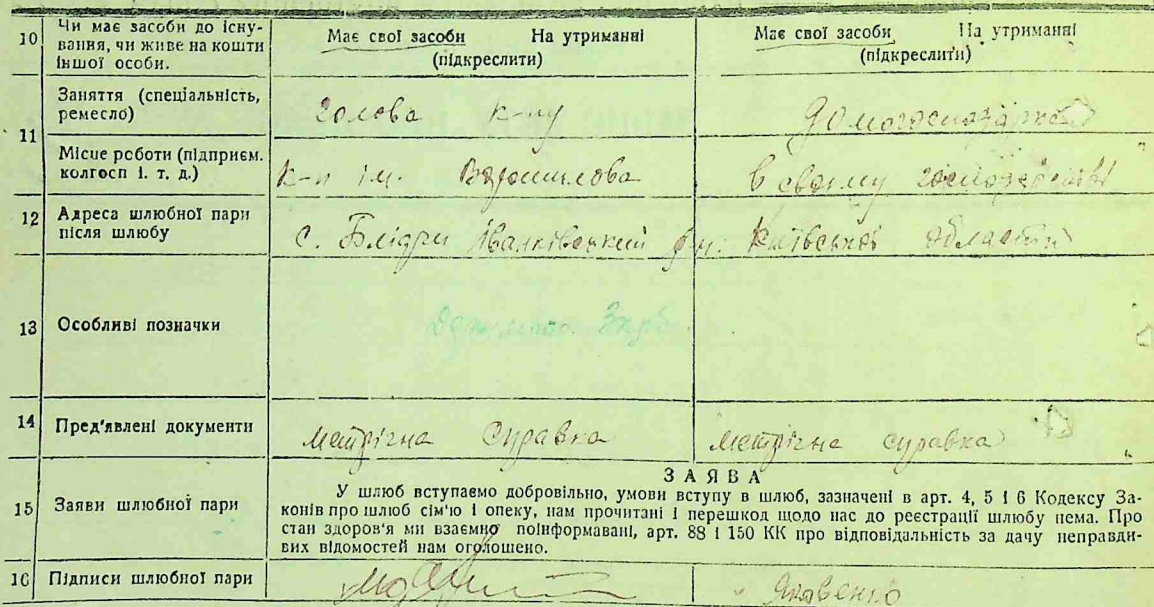 10 Чи має засоби до існу-
вання, чи живе на кошти
іншої особи.
Має свої засоби На утриманні
(підкреслити)
Має свої засоби На утриманні
(підкреслити)
11 Заняття (спеціальність,
ремесло)
голова к-пу
домогосподарка
Місце роботи (підприєм.
колгосп і. т. д.)
к-п ім. Ворошилова
в своєму господарстві
12 Адреса шлюбної пари
після шлюбу
с. Блідри Іванківський Київської області
13 Особливі позначки
14 Пред'явлені документи
метрічна справка
метрічна справка
15 Заяви шлюбної пари
ЗАЯВА
У шлюб вступаємо добровільно, умови вступу в шлюб, зазначені в арт. 4, 5 і 6 Кодексу За-
конів про шлюб сім'ю і опеку, нам прочитані і перешкод щодо нас до реєстрації шлюбу нема. Про
стан здоров'я ми взаємно поінформавані, арт. 88 і 150 КК про відповідальність за дачу неправди-
вих відомостей нам оголошено.
16 Підписи шлюбної пари
Яковенко